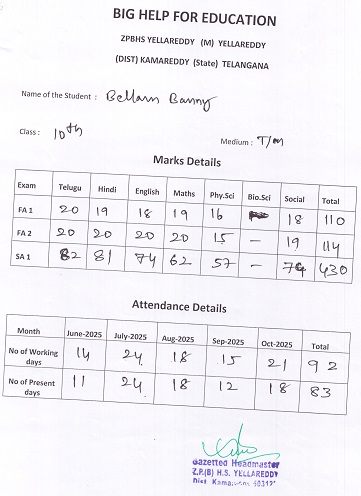 BIG HELP FOR EDUCATION
ZPBHS YELLAREDDY (M) YELLAREDDY
(DIST) KAMAREDDY (State) TELANGANA
Name of the Student : Bellam Banny
Class : 10th
Medium : T/M
Marks Details
Exam Telugu Hindi English Maths Phy.Sci Bio.Sci Social Total
FA 1 20 19 18 19 16 18 110
FA 2 20 20 20 20 15 – 19 114
SA 1 82 81 74 62 57 – 74 430
Attendance Details
Month June-2025 July-2025 Aug-2025 Sep-2025 Oct-2025 Total
No of Working days 14 24 18 15 21 92
No of Present days 11 24 18 12 18 83
Gazetted Headmaster
Z.P.(B) H.S. YELLAREDDY
Dist. Kamareddy 503122